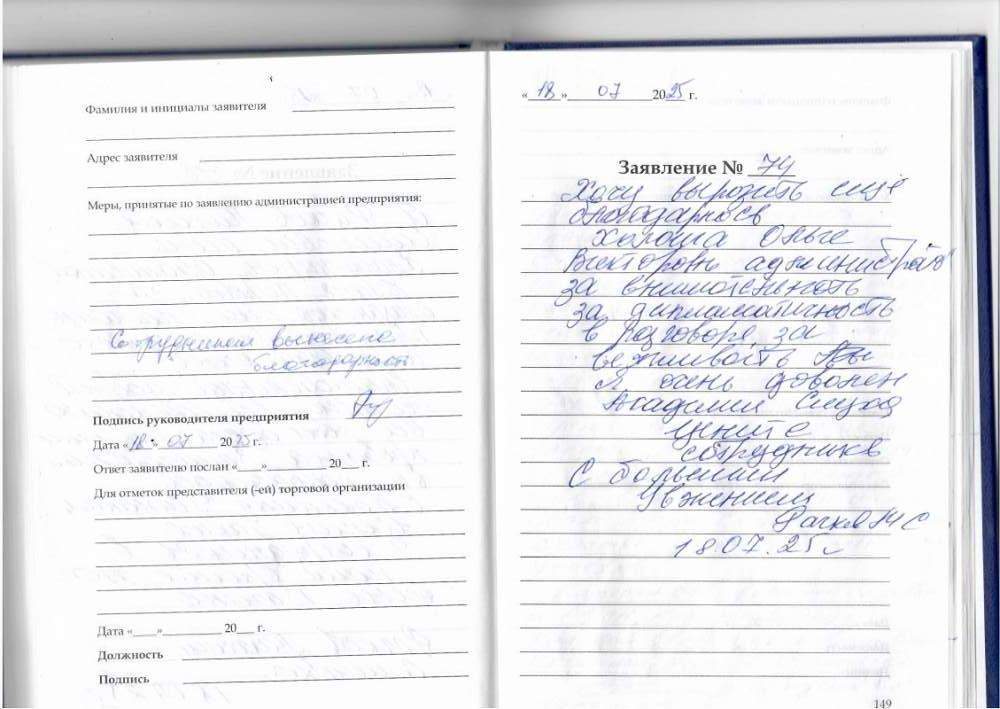 Фамилия и инициалы заявителя
Адрес заявителя
Меры, принятые по заявлению администрацией предприятия:
Сотрудникам вынесена
благодарность
Подпись руководителя предприятия
Дата «18» 07 2025 г.
Ответ заявителю послан «____»__________ 20___ г.
Для отметок представителя (-ей) торговой организации
Дата «____»__________ 20___ г.
Должность
Подпись
«18» 07 2025 г.
Заявление № 74
Хочу вырозить еще
Ольге
Викторовны администрато
за внимотельность
за дипламатичность
в разговоре, за
вежливость
я очень доволен
Академии
Цените
сотрудников
С большим
Увжением
18.07.25г
149